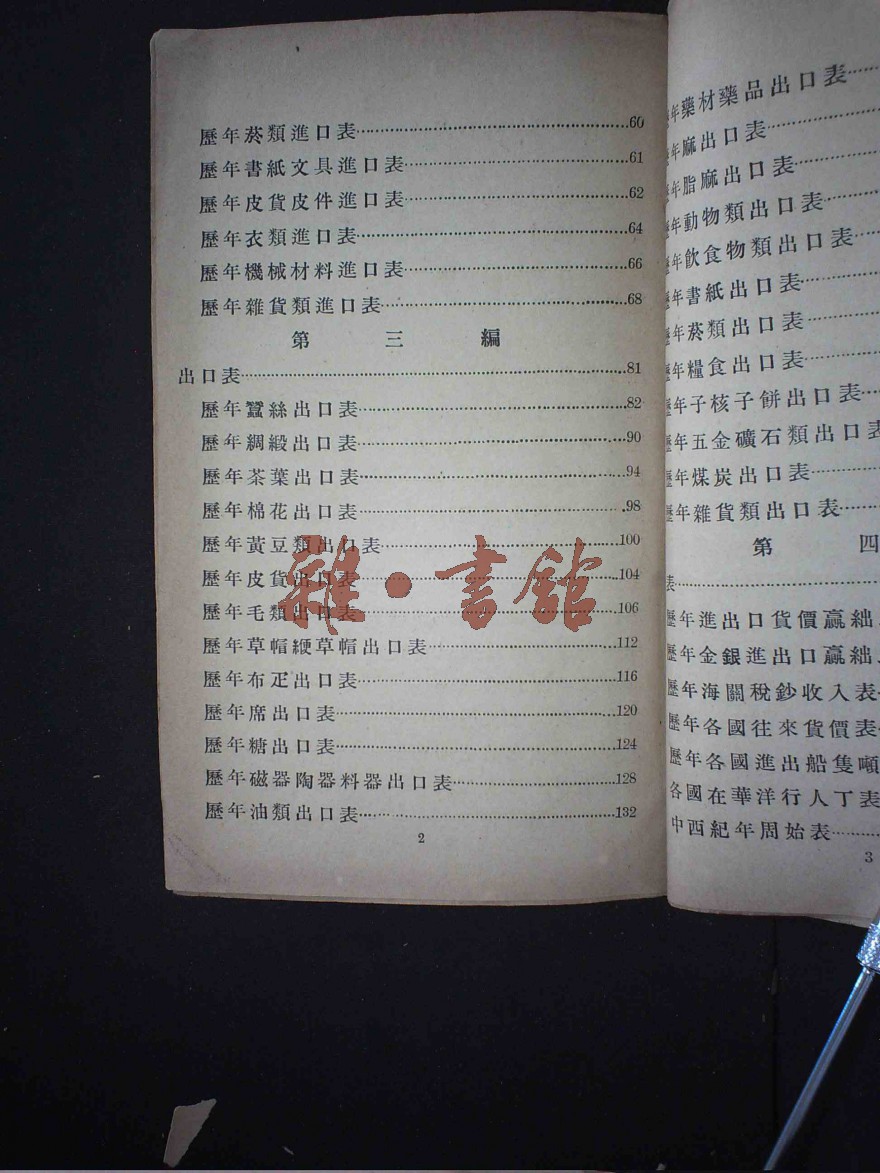 歷年菸類進口表……60
歷年書紙文具進口表……61
歷年皮貨皮件進口表……62
歷年衣類進口表……64
歷年機械材料進口表……66
歷年雜貨類進口表……68
第三編
出口表……81
歷年蠶絲出口表……82
歷年綢緞出口表……90
歷年茶葉出口表……94
歷年棉花出口表……98
歷年黃豆類出口表……100
歷年皮貨出口表……104
歷年毛類出口表……106
歷年草帽緶草帽出口表……112
歷年布疋出口表……116
歷年席出口表……120
歷年糖出口表……124
歷年磁器陶器料器出口表……128
歷年油類出口表……132
2
雜·書館
歷年藥材藥品出口表……
年麻出口表……
年脂麻出口表……
年動物類出口表……
歷年飲食物類出口表……
歷年書紙出口表……
歷年菸類出口表……
歷年糧食出口表……
歷年子核子餅出口表……
歷年五金礦石類出口表
歷年煤炭出口表……
歷年雜貨類出口表……
第四
表……
歷年進出口貨價贏絀
歷年金銀進出口贏絀
歷年海關稅鈔收入表
歷年各國往來貨價表
歷年各國進出船隻噸
各國在華洋行人丁表
中西紀年周始表……
3